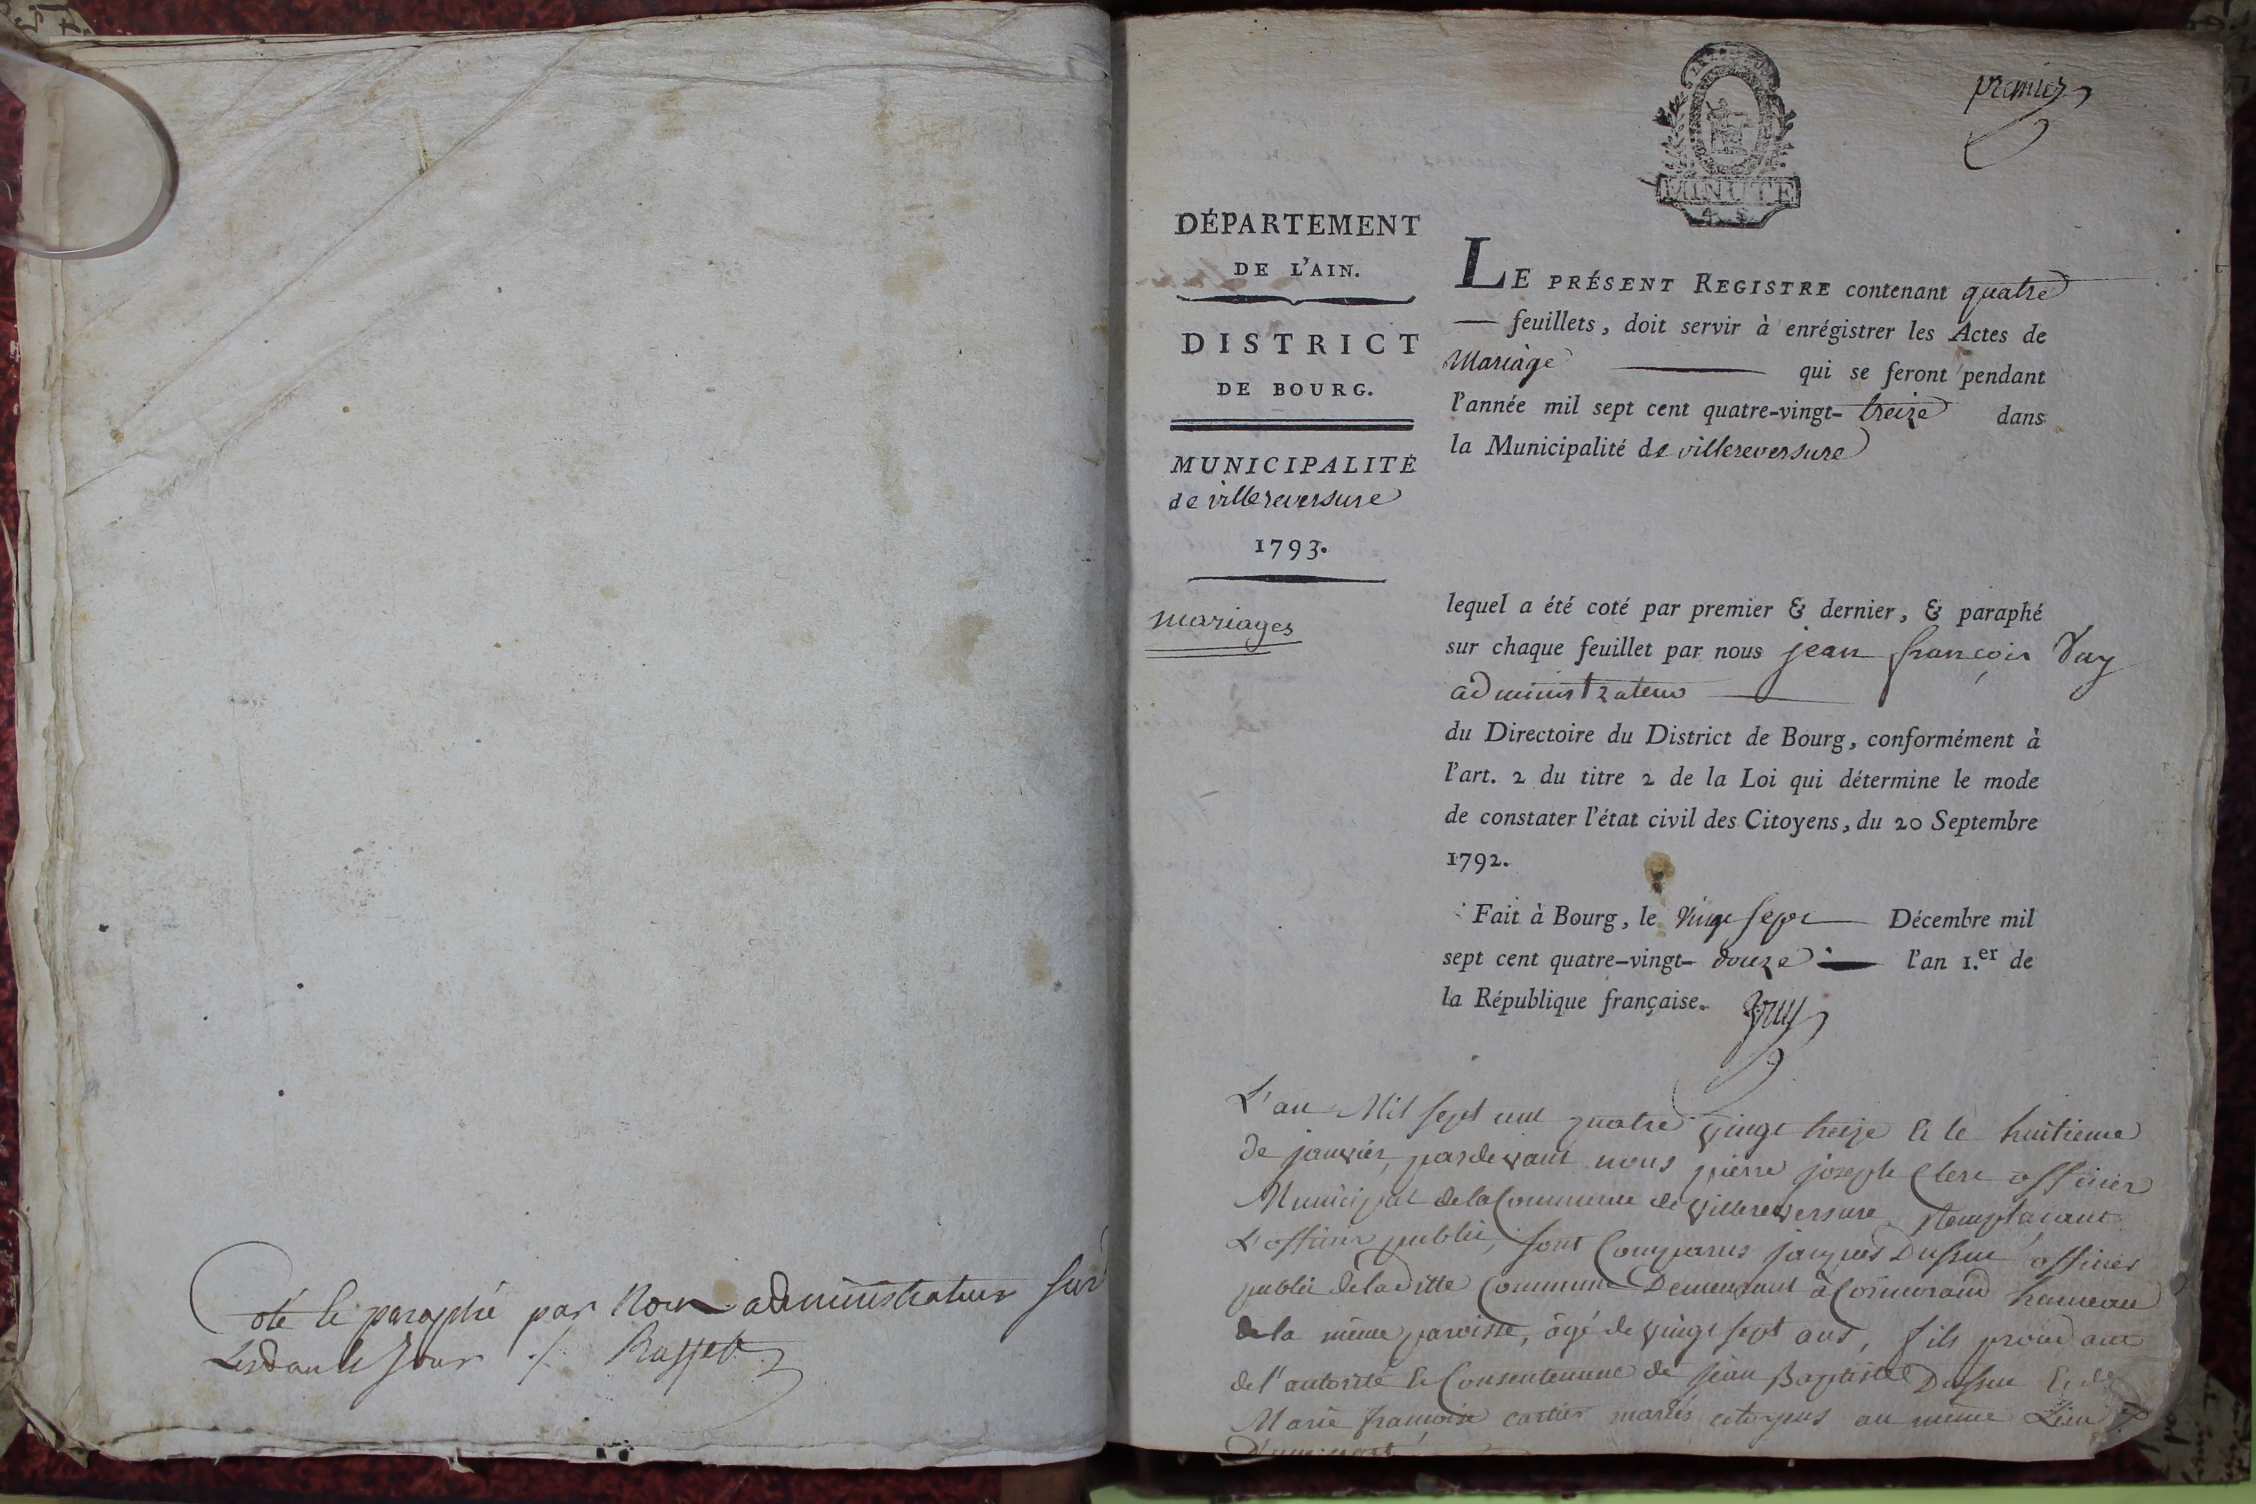 Coté & paraphé par Nous administrateur sur
Lesdauts jour ./. Rasset
premier
MINUTE
4. S.
DÉPARTEMENT
DE L'AIN.
DISTRICT
DE BOURG.
MUNICIPALITÉ
de villereversure
1793.
mariages
LE PRÉSENT REGISTRE contenant quatre
— feuillets, doit servir à enrégistrer les Actes de
Mariage qui se feront pendant
l'année mil sept cent quatre-vingt-treize dans
la Municipalité de villereversure
lequel a été coté par premier & dernier, & paraphé
sur chaque feuillet par nous jean françois
administrateur
du Directoire du District de Bourg, conformément à
l'art. 2 du titre 2 de la Loi qui détermine le mode
de constater l'état civil des Citoyens, du 20 Septembre
1792.
Fait à Bourg, le vingt sept Décembre mil
sept cent quatre-vingt-douze l'an 1.er de
la République française.
L'an Mil sept cent quatre vingt treize & le huitieme
de janvier, pardevant nous pierre joseph Clerc officier
Municipal de la Commune de villereversure Remplaçant
L'officier public, sont Comparus jacques Dufour officier
public de laditte Commune Demeurant à Cormorand hameau
de la même paroisse, âgé de vingt sept ans, fils
de l'autorité & Consentement de jean Baptiste & de
Marie françoise cartier mariés citoyens au même Lieu